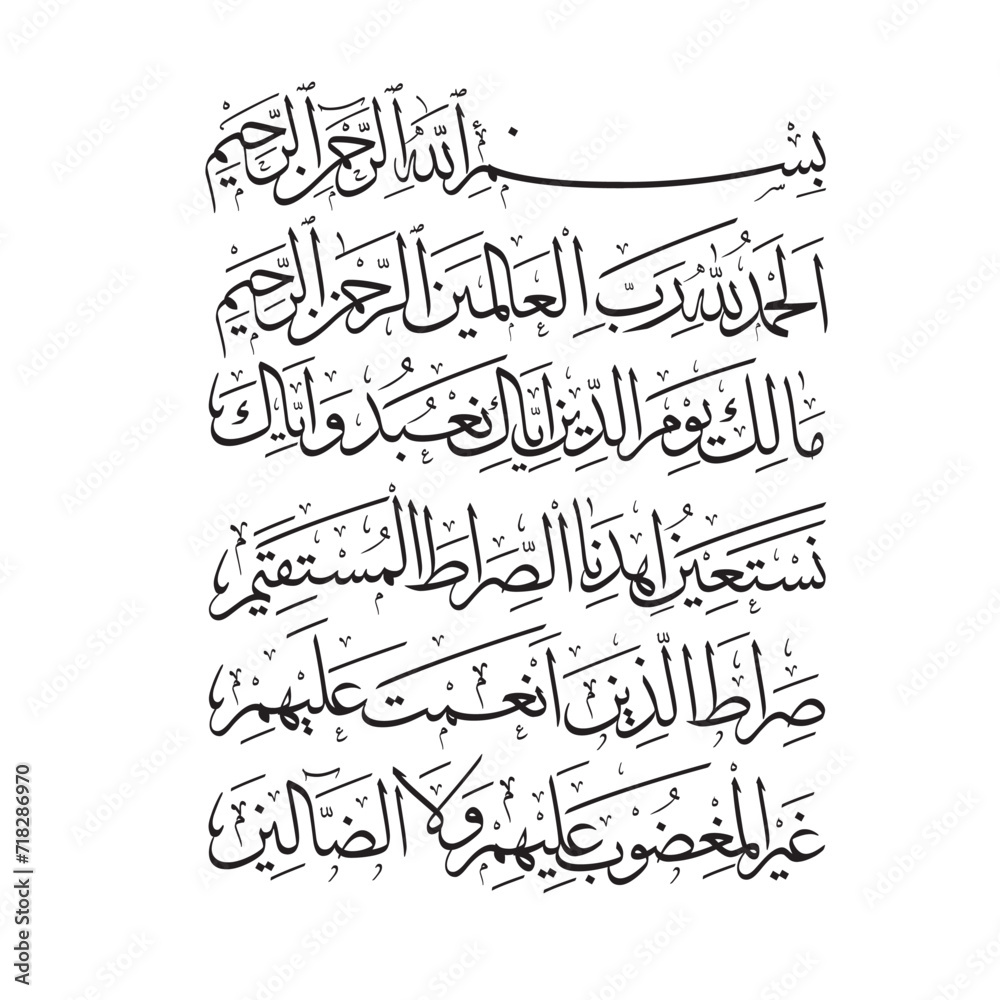 بِسْمِ ٱللّٰهِ ٱلرَّحْمٰنِ ٱلرَّحِيْمِ
اَلْحَمْدُ لِلّٰهِ رَبِّ الْعَالَمِيْنَ الرَّحْمٰنِ الرَّحِيْمِ
مَالِكِ يَوْمِ الدِّيْنِ اِيَّاكَ نَعْبُدُ وَاِيَّاكَ
نَسْتَعِيْنُ اِهْدِنَا الصِّرَاطَ الْمُسْتَقِيْمَ
صِرَاطَ الَّذِيْنَ اَنْعَمْتَ عَلَيْهِمْ
غَيْرِ الْمَغْضُوْبِ عَلَيْهِمْ وَلَا الضَّالِّيْنَ
Adobe Stock | #718286970